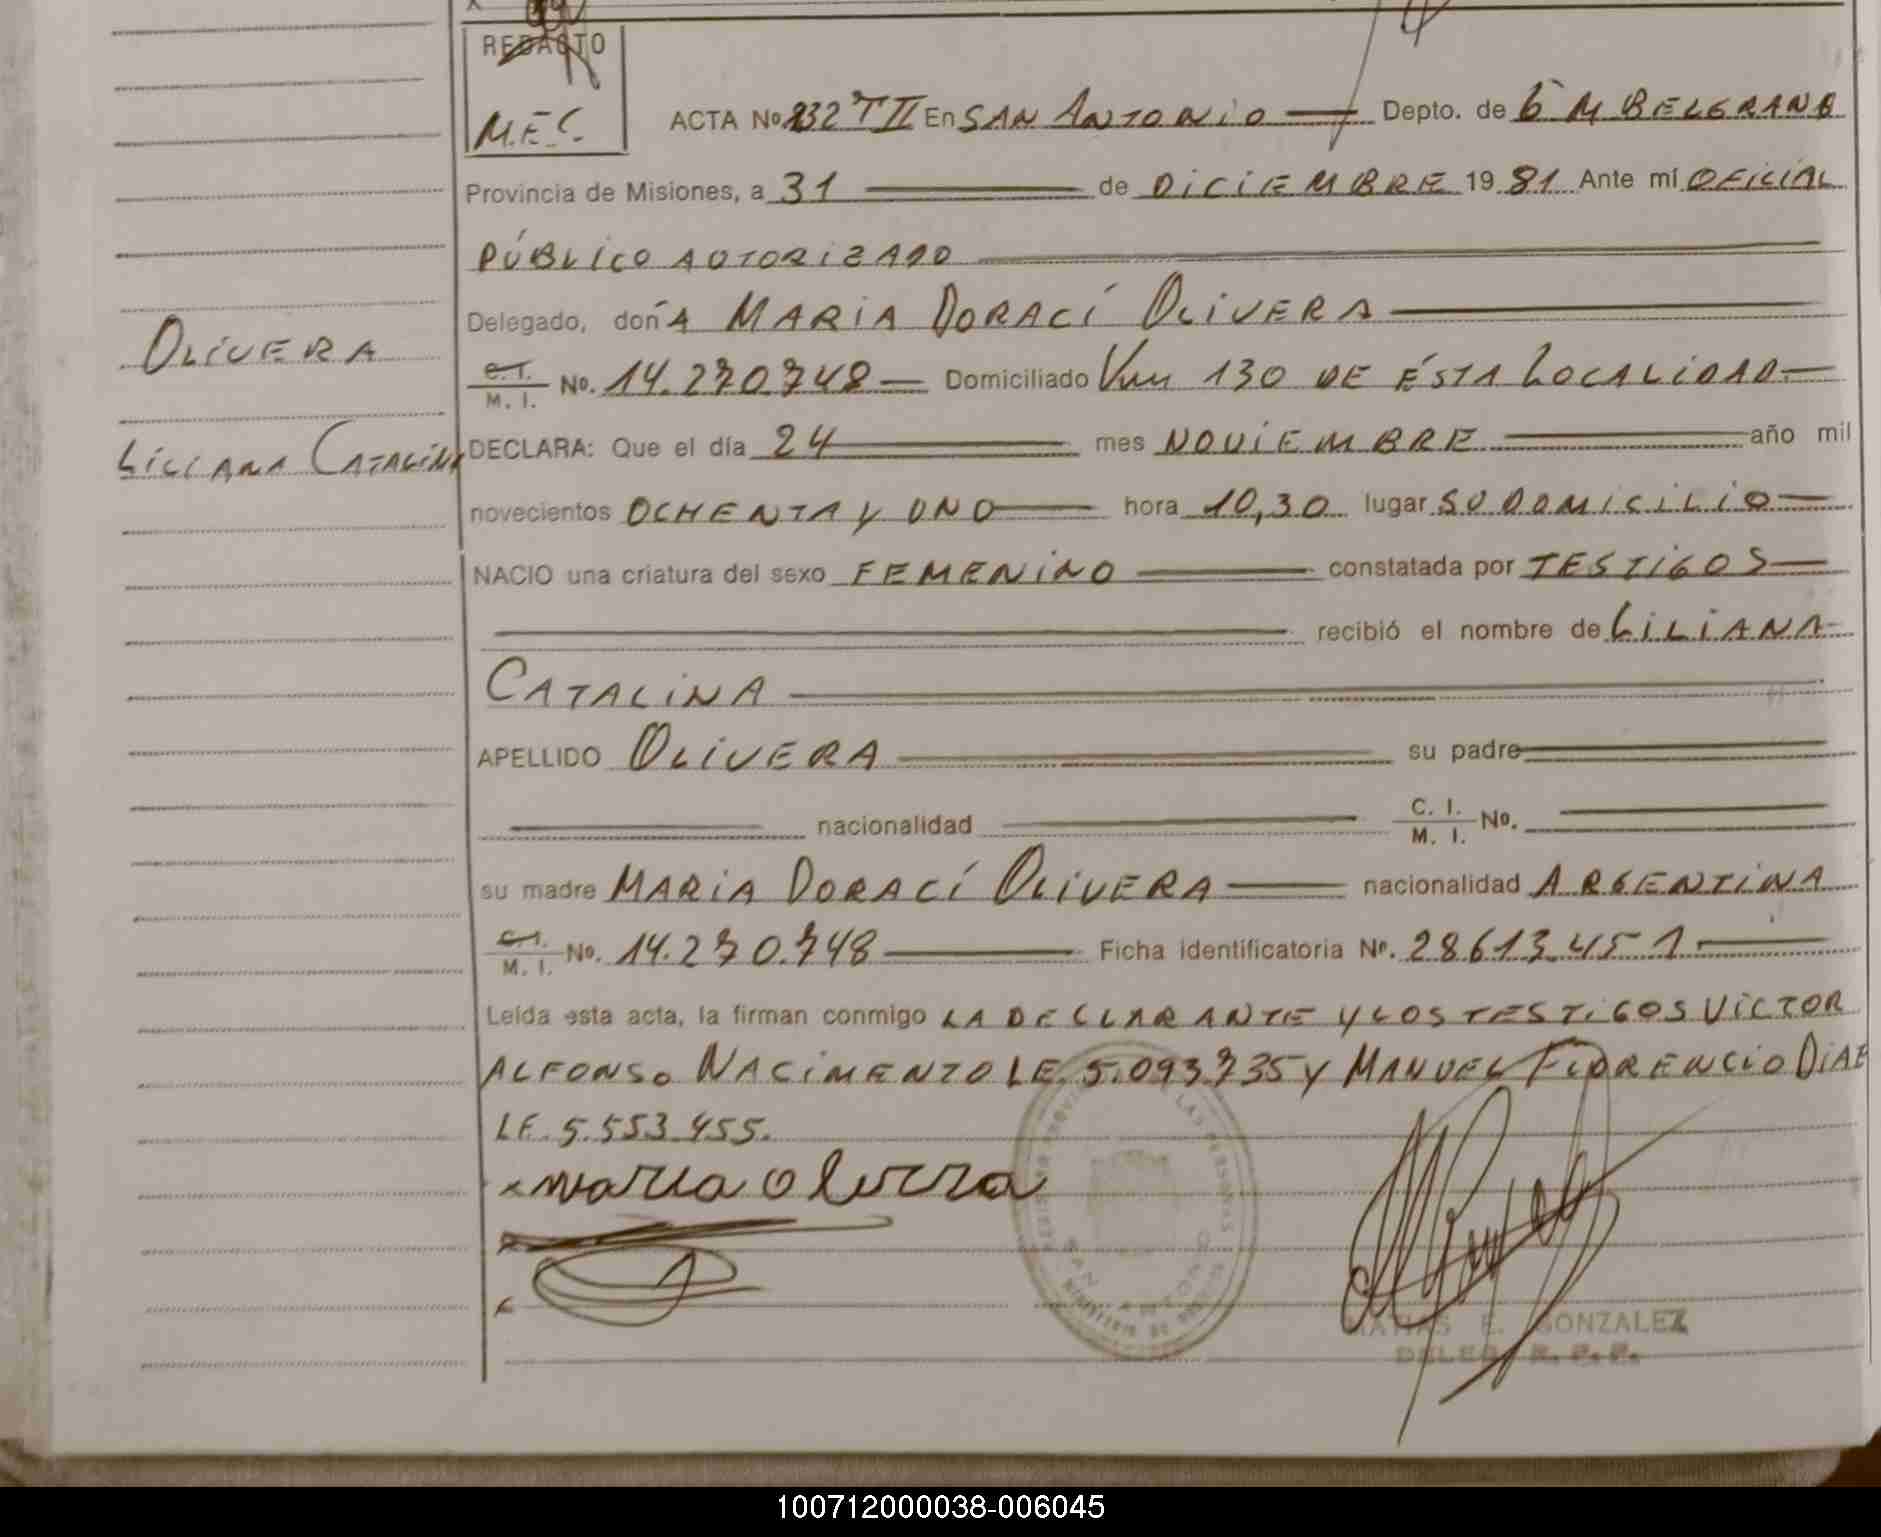 REDACTO
M.E.C.
ACTA No 232 T II En SAN ANTONIO Depto. de G M BELGRANO
Provincia de Misiones, a 31 de DICIEMBRE 19 81 Ante mí OFICIAL
PÚBLICO AUTORIZADO
Delegado, doñA MARIA DORACÍ OLIVERA
OLIVERA
C.I. M. I. No. 14.270.748 Domiciliado Km 130 DE ÉSTA LOCALIDAD
LILIANA CATALINA
DECLARA: Que el día 24 mes NOVIEMBRE año mil
novecientos OCHENTA Y UNO hora 10,30 lugar SU DOMICILIO
NACIO una criatura del sexo FEMENINO constatada por TESTIGOS
recibió el nombre de LILIANA
CATALINA
APELLIDO OLIVERA su padre
nacionalidad C. I. M. I. No.
su madre MARIA DORACÍ OLIVERA nacionalidad ARGENTINA
C.I. M. I. No. 14.270.748 Ficha identificatoria No. 28.613.451
Leída esta acta, la firman conmigo LA DECLARANTE Y LOS TESTIGOS VICTOR
ALFONSO NACIMENTO LE. 5.093.735 Y MANUEL FLORENCIO DIAZ
LE. 5.553.455.
x maria olivera
SAN ANTONIO
MATIAS E. GONZALEZ
DELEG. R. P. P.
100712000038-006045